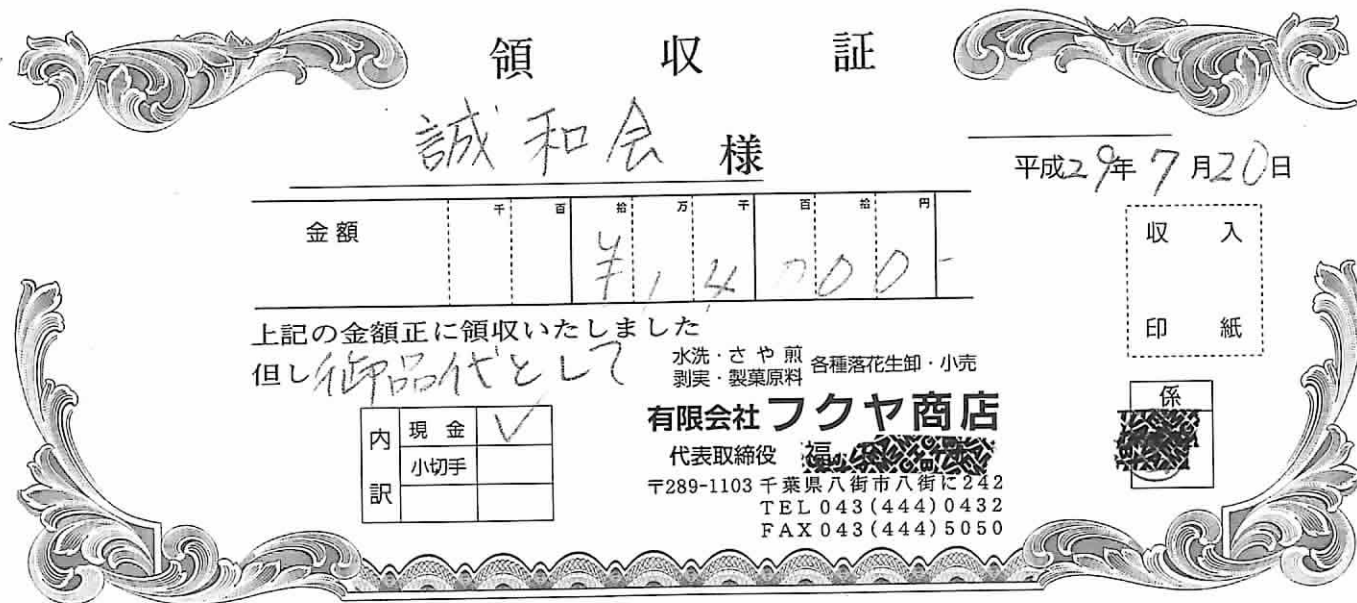 領収証
誠和会 様
平成29年7月20日
金額 千 百 拾 万 千 百 拾 円
¥14000-
収入
印紙
上記の金額正に領収いたしました
但し御品代として
水洗・さや煎
剥実・製菓原料
各種落花生卸・小売
有限会社フクヤ商店
代表取締役 福
〒289-1103 千葉県八街市八街に242
TEL 043(444)0432
FAX 043(444)5050
係
内訳
現金 ✓
小切手